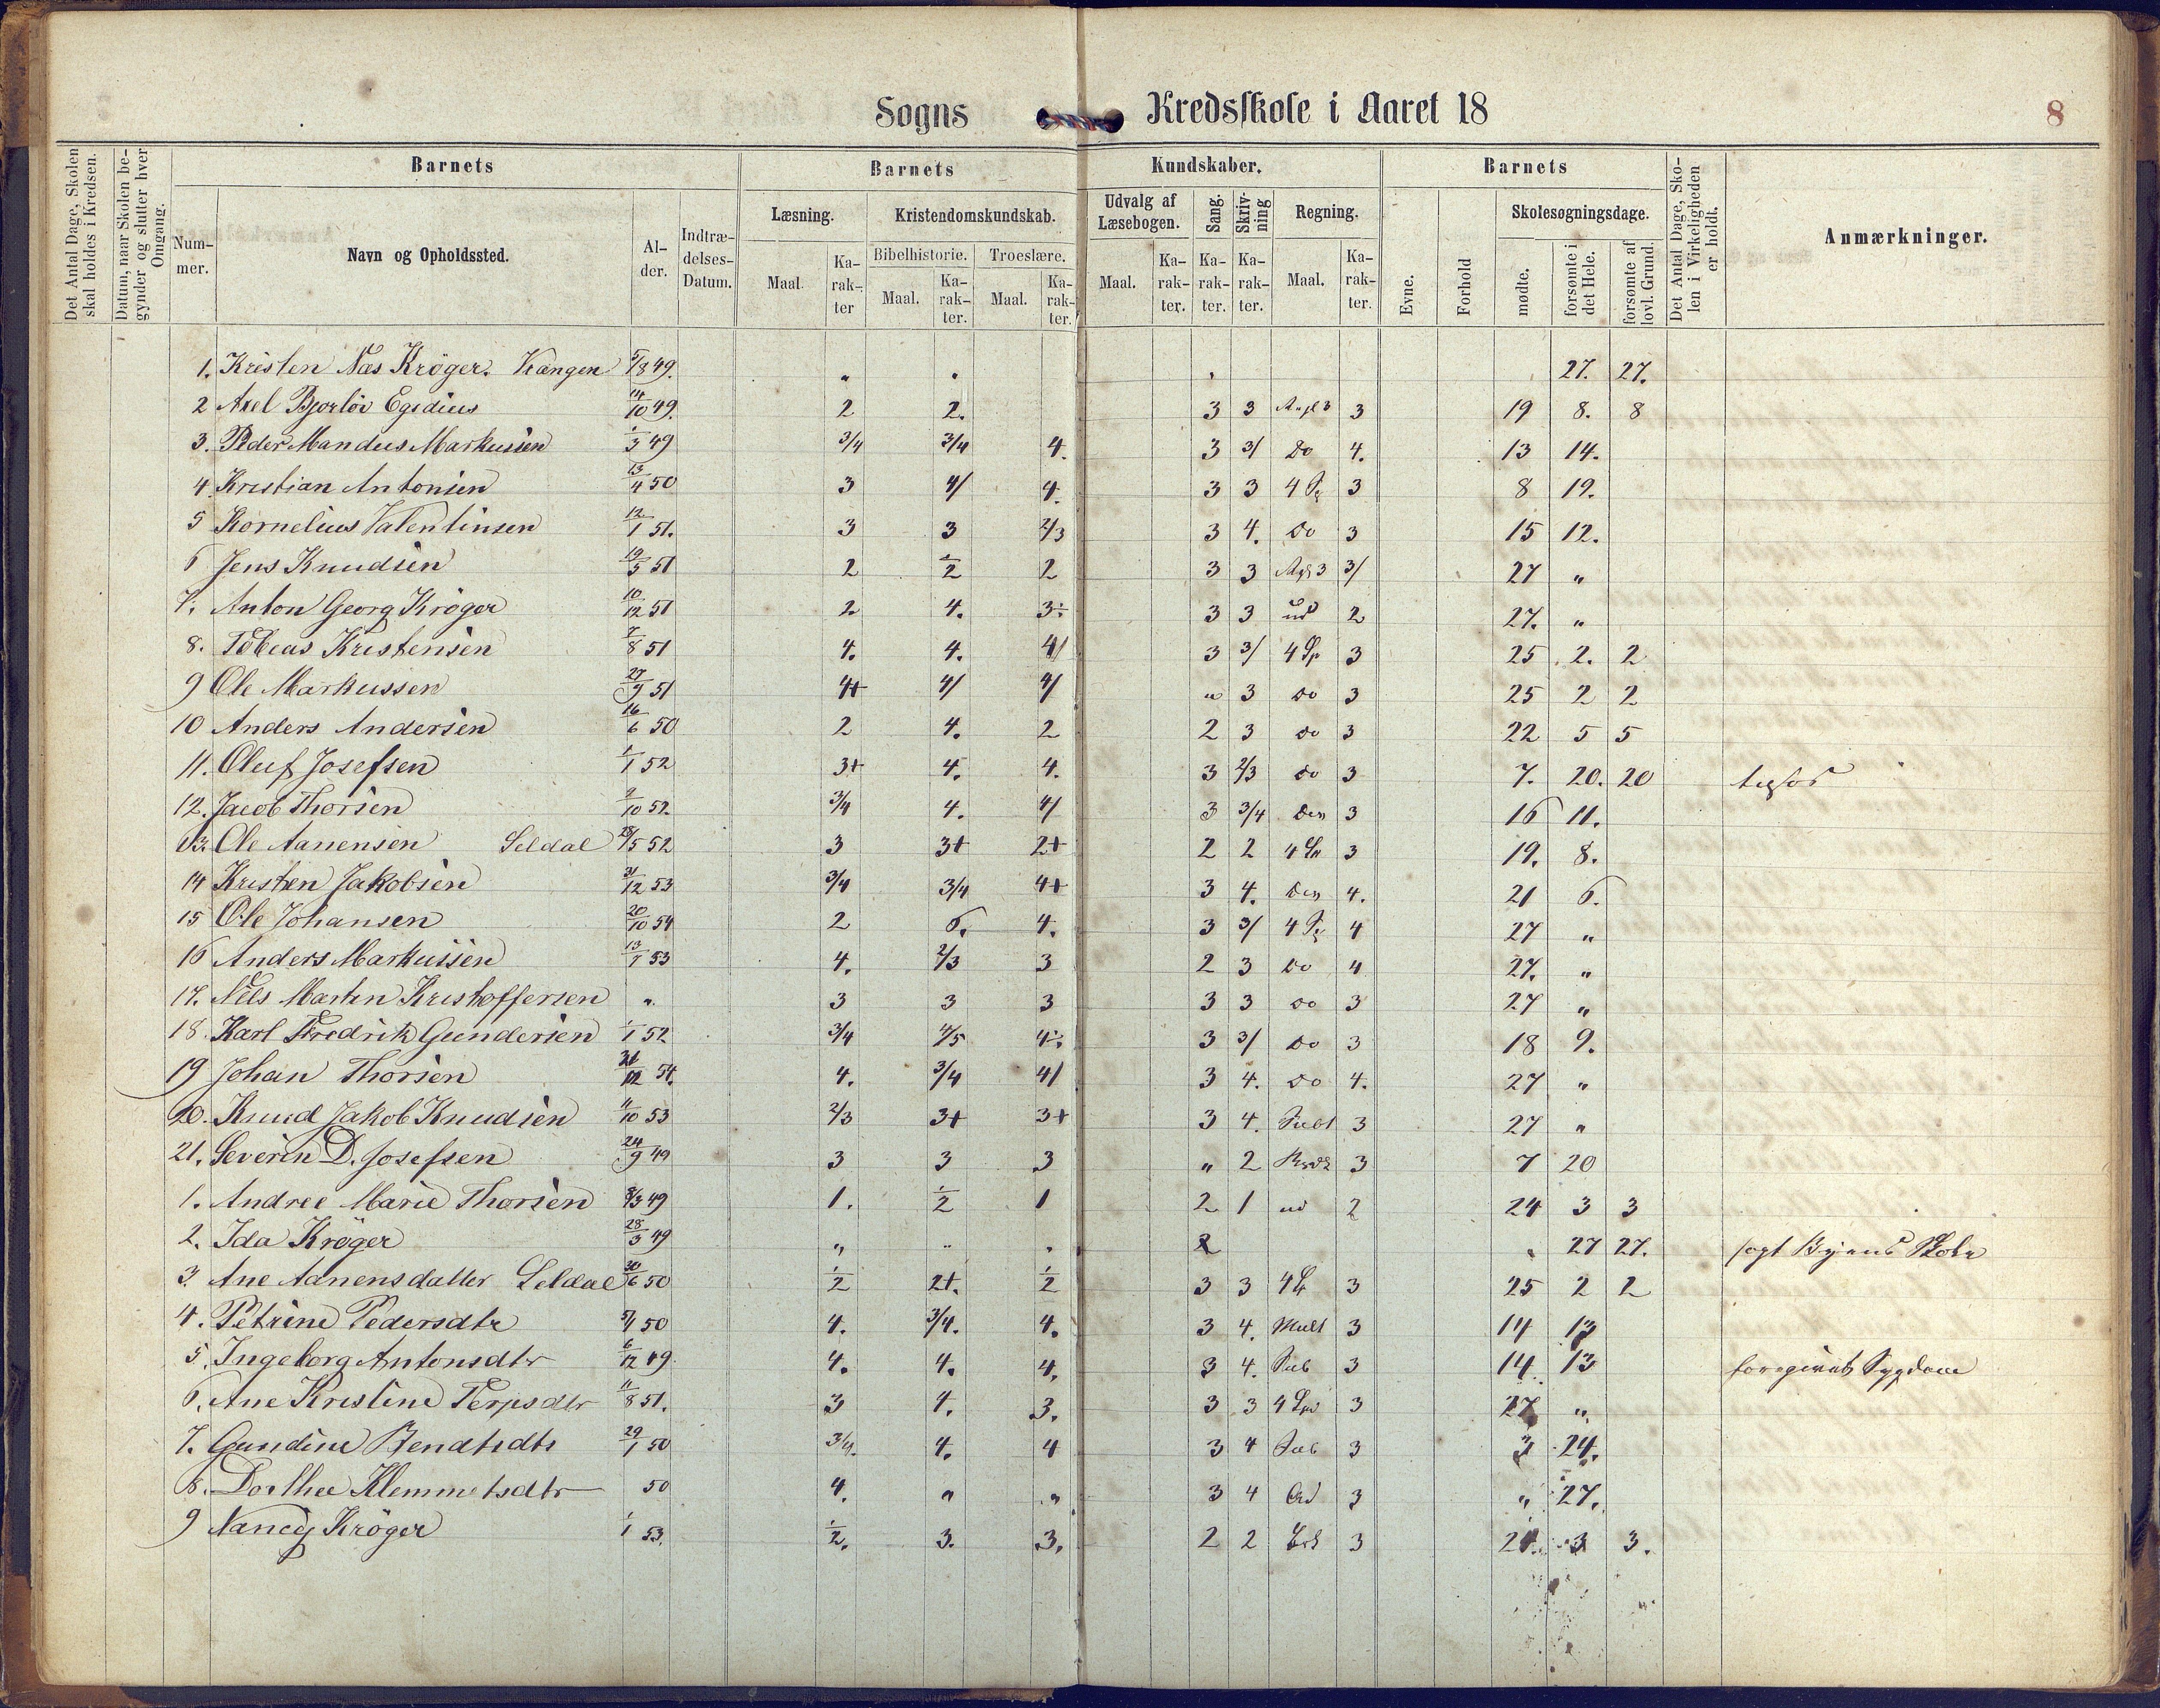 Sogns Kredsskole i Aaret 18
8
Det Antal Dage, Skolen skal holdes i Kredsen.
Datum, naar Skolen begynder og slutter hver Omgang.
Barnets
Nummer.
Navn og Opholdssted.
Alder.
Indtrædelses-Datum.
Barnets Kundskaber.
Læsning.
Maal.
Karakter
Kristendomskundskab.
Bibelhistorie.
Maal.
Karakter.
Troeslære.
Maal.
Karakter.
Udvalg af Læsebogen.
Maal.
Karakter.
Sang.
Karakter.
Skrivning
Karakter.
Regning.
Maal.
Karakter.
Barnets
Evne.
Forhold
Skolesøgningsdage.
mødte.
forsømte i det Hele.
forsømte af lovl. Grund.
Det Antal Dage, Skolen i Virkeligheden er holdt.
Anmærkninger.
1. Kristen Næs Krøger. Vrængen 5/8 49. " " " 27. 27.
2 Axel Bjorløv Egidius 14/10 49. 2 2. 3 3 3 19 8. 8
3. Peder Mandus Markussen 1/3 49 3/4 3/4 4. 3 3/ Do 4. 13 14.
4. Kristian Antonsen 13/4 50 3 4/ 4. 3 3 3 8 19.
5 Kornelius Valentinsen 12/1 51. 3 3 2/3 3 4. Do 3 15 12.
6 Jens Knudsen 19/5 51 2 ÷/2 2 3 3 3/ 27 "
7. Anton Georg Krøger 10/12 51 2 4. 3÷ 3 3 ud 2 27. "
8. Tobias Kristensen 7/8 51 4. 4. 4/ 3 3/ 4 Sp 3 25 2. 2
9 Ole Markussen 27/9 51 4+ 4/ 4/ " 3 Do 3 25 2 2
10 Anders Andersen 16/6 50 2 4. 2 2 3 Do 3 22 5 5
11. Oluf Josefsen 1/1 52 3+ 4. 4. 3 2/3 Do 3 7. 20. 20
12. Jacob Thorsen 9/10 52. 3/4 4. 4/ 3 3/4 3 16 11.
13. Ole Aanensen Seldal 28/5 52 3 3+ 2+ 2 2 3 19. 8.
14 Kristen Jakobsen 31/12 53 3/4 3/4 4+ 3 4. 4. 21 6.
15 Ole Johansen 20/10 54 2 6. 4. 3 3/ 4 27 "
16 Anders Markussen 13/1 53 4. 2/3 3 2 3 Do 4 27. "
17. Nils Martin Kristoffersen " 3 3 3 3 3 Do 3 27 "
18. Karl Fredrik Gundersen 1/1 52 3/4 4/5 4÷ 3 3/ Do 3 18 9.
19 Johan Thorsen 31/12 54. 4. 3/4 4/ 3 4. Do 4. 27 "
20. Knud Jakob Knudsen 11/10 53 2/3 3+ 3+ 3 4. Subt 3 27 "
21. Severin D. Josefsen 24/9 49 3 3 3 " 2 3 7 20
1. Andree Marie Thorsen 8/3 49 1. ÷/2 1 2 1 ud 2 24 3 3
2. Ida Krøger 28/3 49 " " " 2 " 27 27. søgt Byens Skole
3. Ane Aanensdatter Seldal 30/6 50 ÷/2 2+. ÷/2 3 3 3 25 2 2
4. Petrine Pedersdtr 5/1 50 4. 3/4. 4. 3 4. Mult 3 14 13
5. Ingeborg Antonsdtr 6/12 49. 4. 4. 4. 3 4. Sub 3 14. 13 foregivet Sygdom
6. Ane Kristine Terjesdtr 11/8 51. 3 4. 3. 3 3 3 27 "
7. Gundine Bendtsdtr 29/1 50 3/4. 4. 4 3 4 Sub 3 3 24.
8. Dorthea Klemmetsdtr 50 4. " " 3 4 Ad 3 " 27.
9 Nancy Krøger 1/1 53. ÷/2. 3. 3. 2 2 3 24. 3 3.